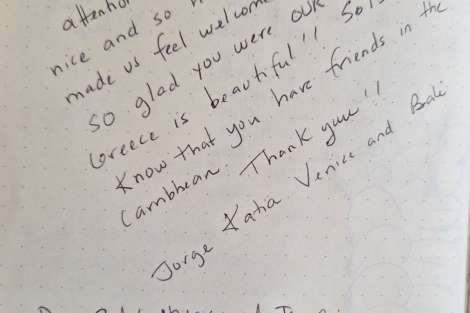 nice and so
made us feel welcom
so glad you were our
Greece is beautiful!! So
Know that you have friends in the
Carribbean. Thank you!!
Jorge Katia Venice and Bali